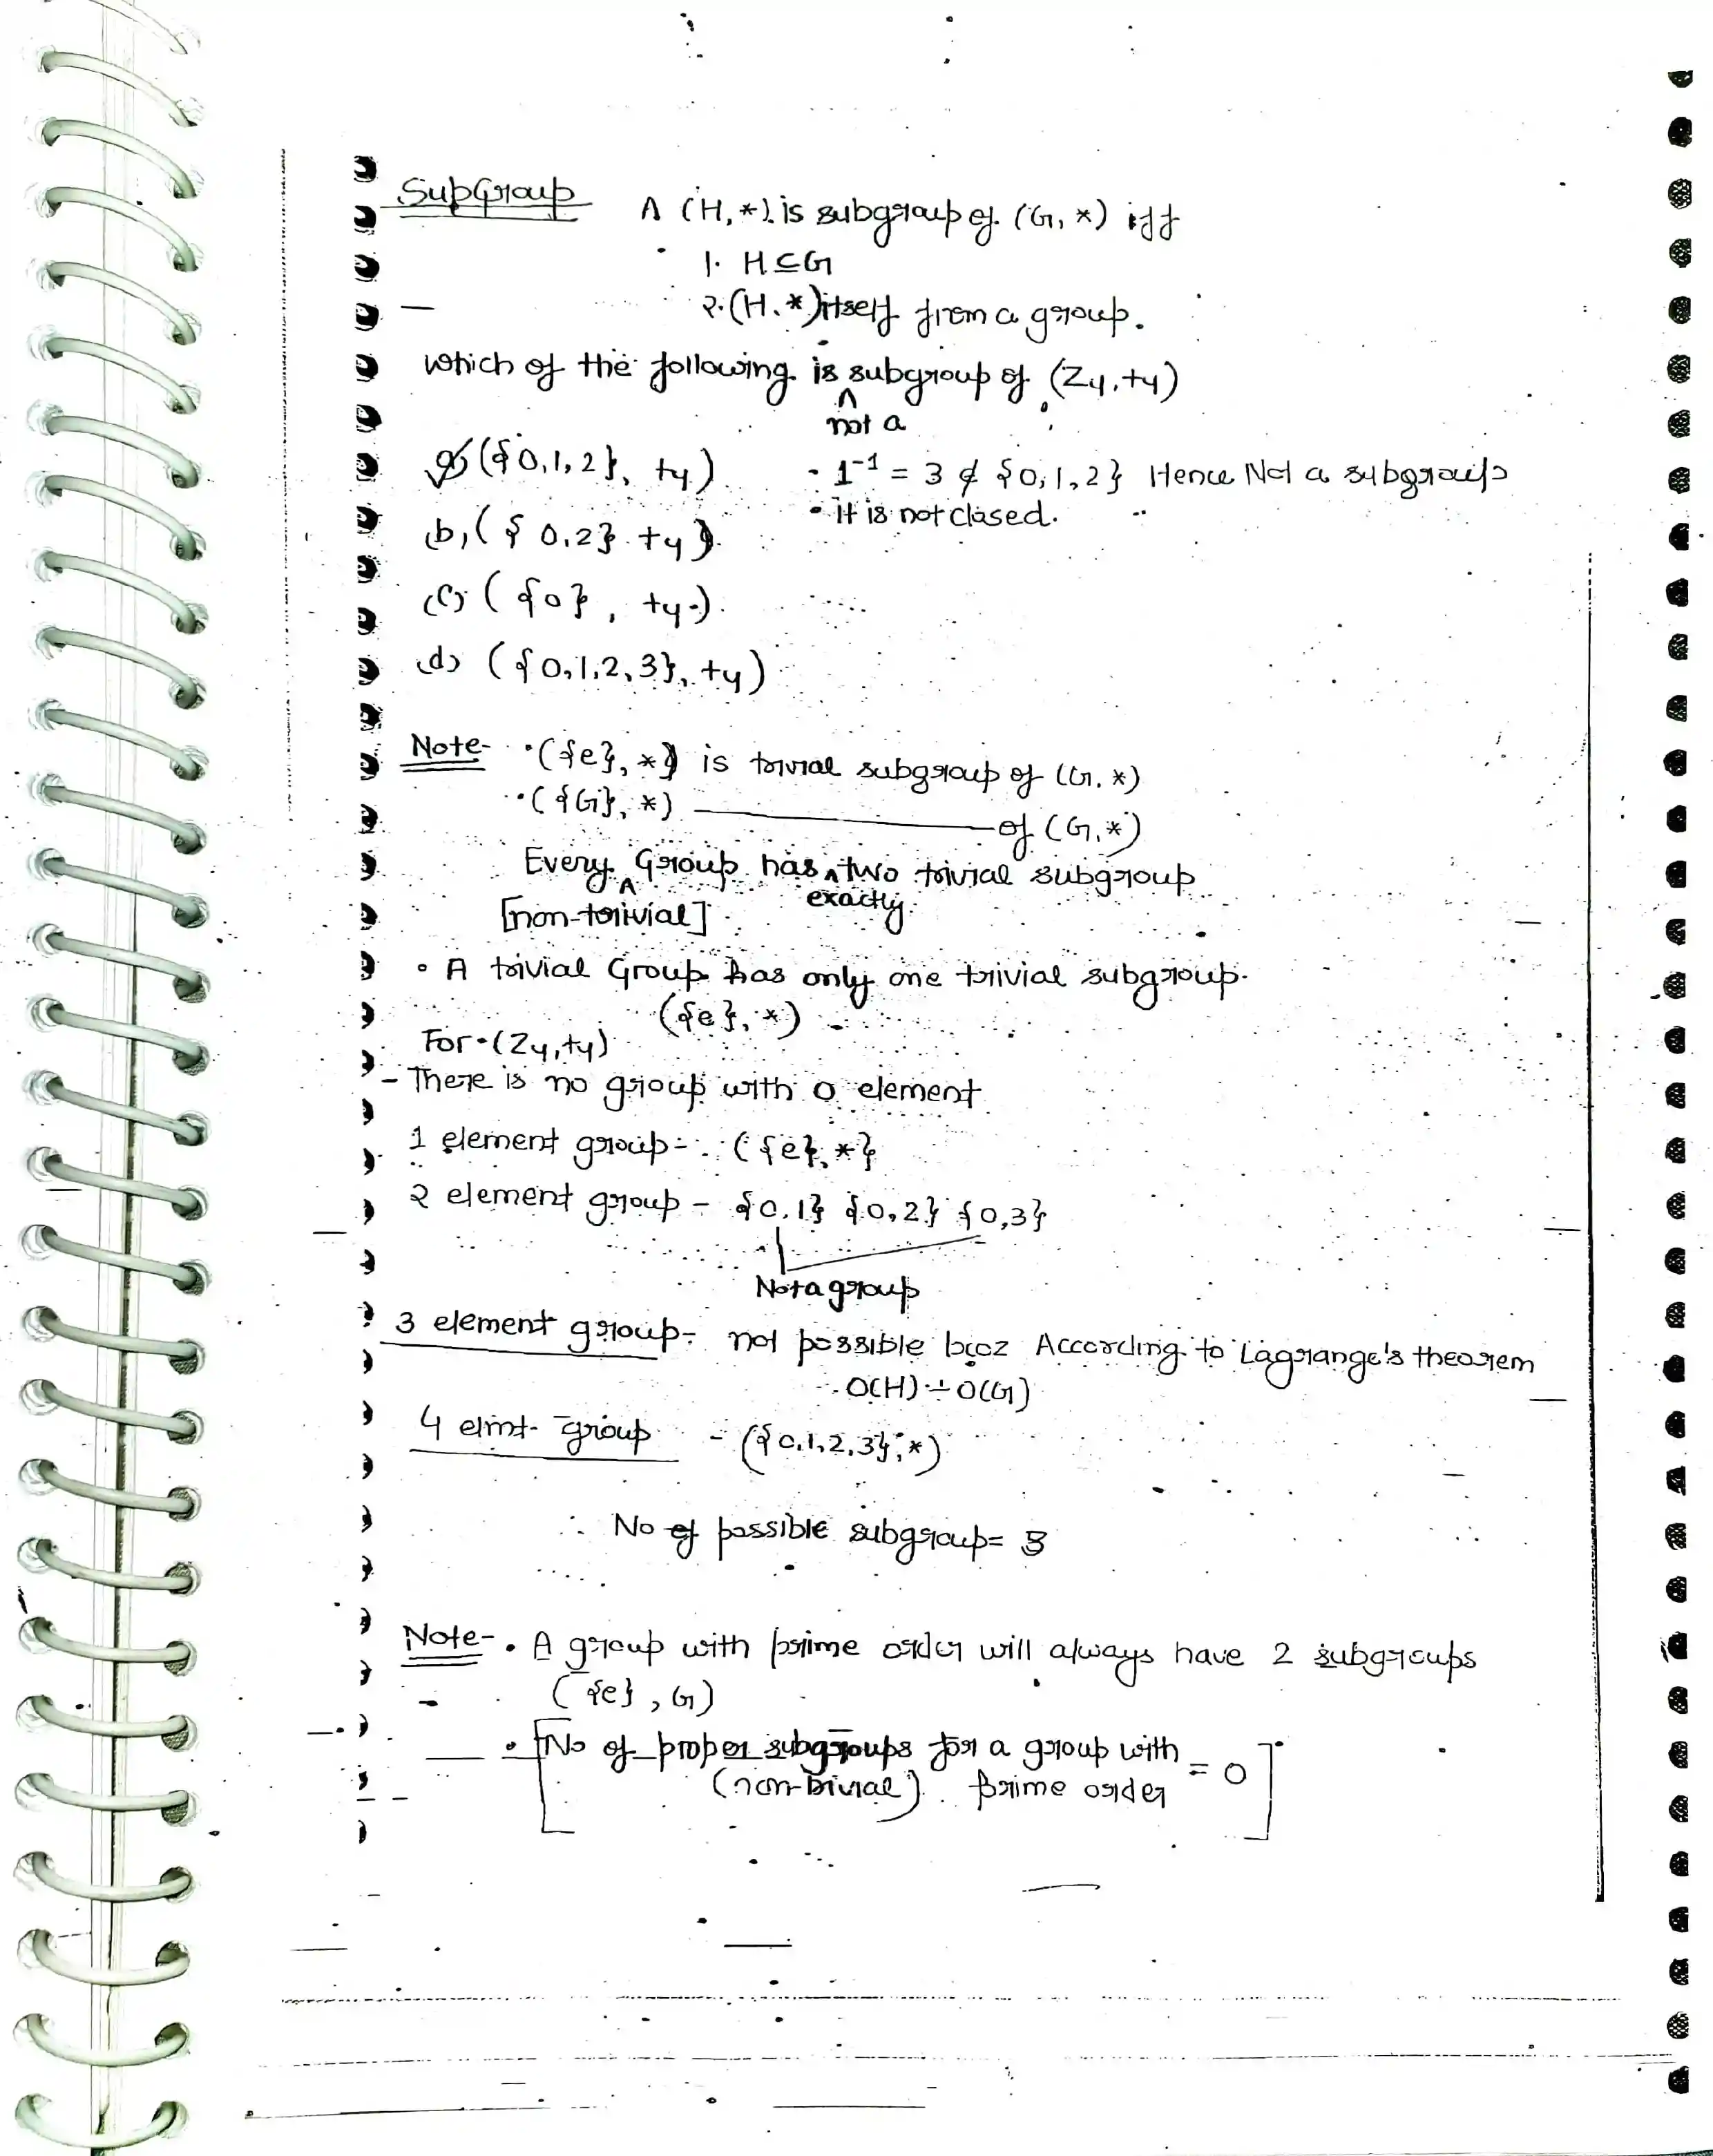 SubGroup
A (H, *) is subgroup of (G, *) iff
1. H ⊆ G
2. (H, *) itself from a group.
which of the following is subgroup of (Z4, +4)
^ not a
a) ({0, 1, 2}, +4) · 1⁻¹ = 3 ∉ {0, 1, 2} Hence Not a subgroup
• It is not closed.
b) ({0, 2} +4)
(c) ({0}, +4)
(d) ({0, 1, 2, 3}, +4)
Note- • ({e}, *) is trivial subgroup of (G, *)
• ({G}, *) ———— of (G, *)
Every ^ Group has ^ two trivial subgroup
[non-trivial] exactly
• A trivial Group has only one trivial subgroup.
({e}, *)
For (Z4, +4)
- There is no group with 0 element
1 element group - ({e}, *}
2 element group - {0, 1} {0, 2} {0, 3}
Not a group
3 element group - not possible bcoz According to Lagrange's theorem
O(H) ÷ O(G)
4 elmt- group - ({0, 1, 2, 3}, *)
∴ No of possible subgroup = 3
Note- • A group with prime order will always have 2 subgroups
({e}, G)
• [No of proper subgroups for a group with = 0]
(non-trivial) prime order